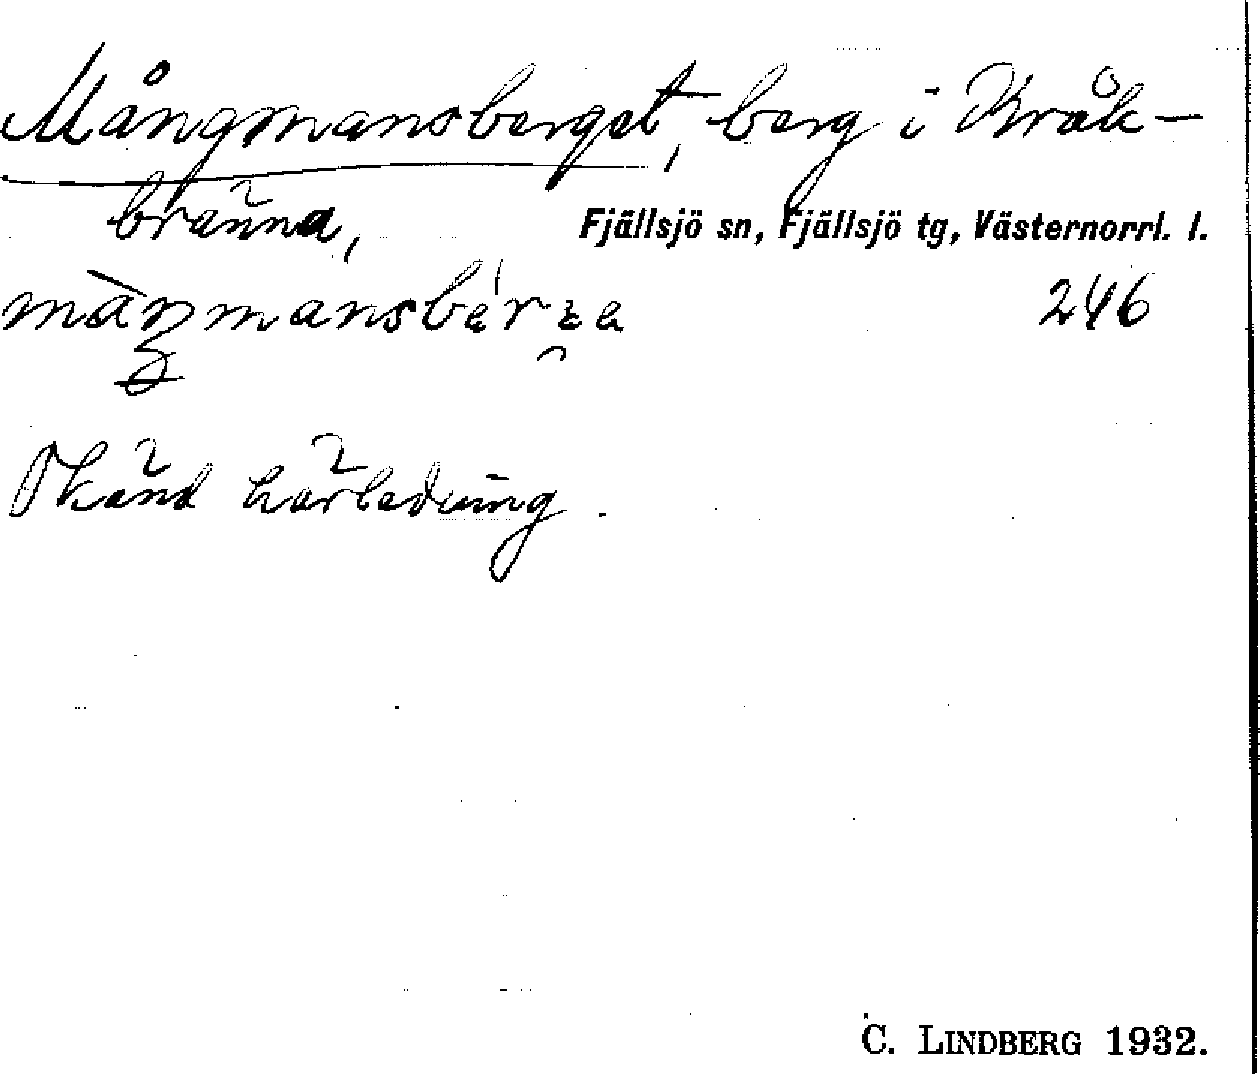 Mångmansberget, berg i Kråk-
bränna,
Fjällsjö sn, Fjällsjö tg, Västernorrl. l.
246
Okänd härledning.
C. LINDBERG 1932.